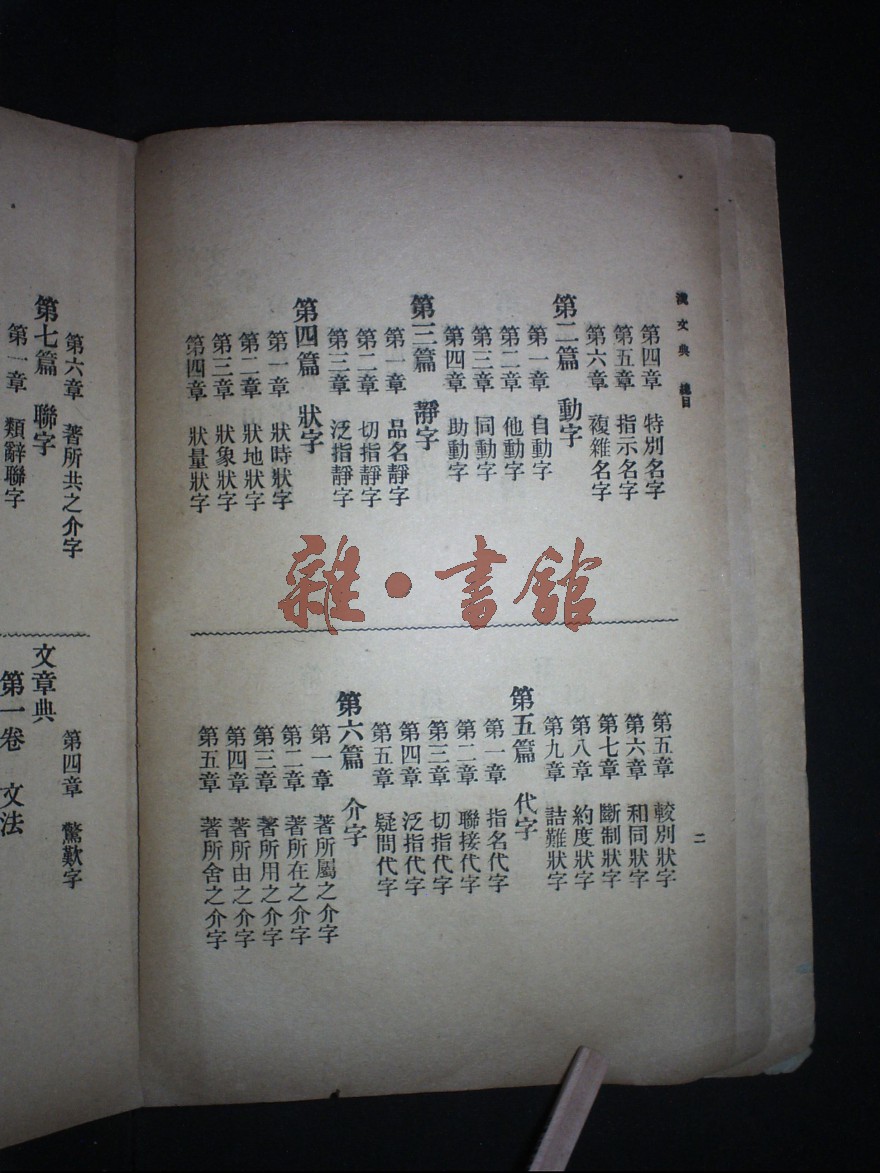 漢文典 總目
第四章 特別名字
第五章 指示名字
第六章 複雜名字
第二篇 動字
第一章 自動字
第二章 他動字
第三章 同動字
第四章 助動字
第三篇 靜字
第一章 品名靜字
第二章 切指靜字
第三章 泛指靜字
第四篇 狀字
第一章 狀時狀字
第二章 狀地狀字
第三章 狀象狀字
第四章 狀量狀字
第五章 較別狀字
第六章 和同狀字
第七章 斷制狀字
第八章 約度狀字
第九章 詰難狀字
第五篇 代字
第一章 指名代字
第二章 聯接代字
第三章 切指代字
第四章 泛指代字
第五章 疑問代字
第六篇 介字
第一章 著所屬之介字
第二章 著所在之介字
第三章 著所用之介字
第四章 著所由之介字
第五章 著所舍之介字
二
雜·書館
第六章 著所共之介字
第七篇 聯字
第一章 類辭聯字
第四章 驚歎字
文章典
第一卷 文法